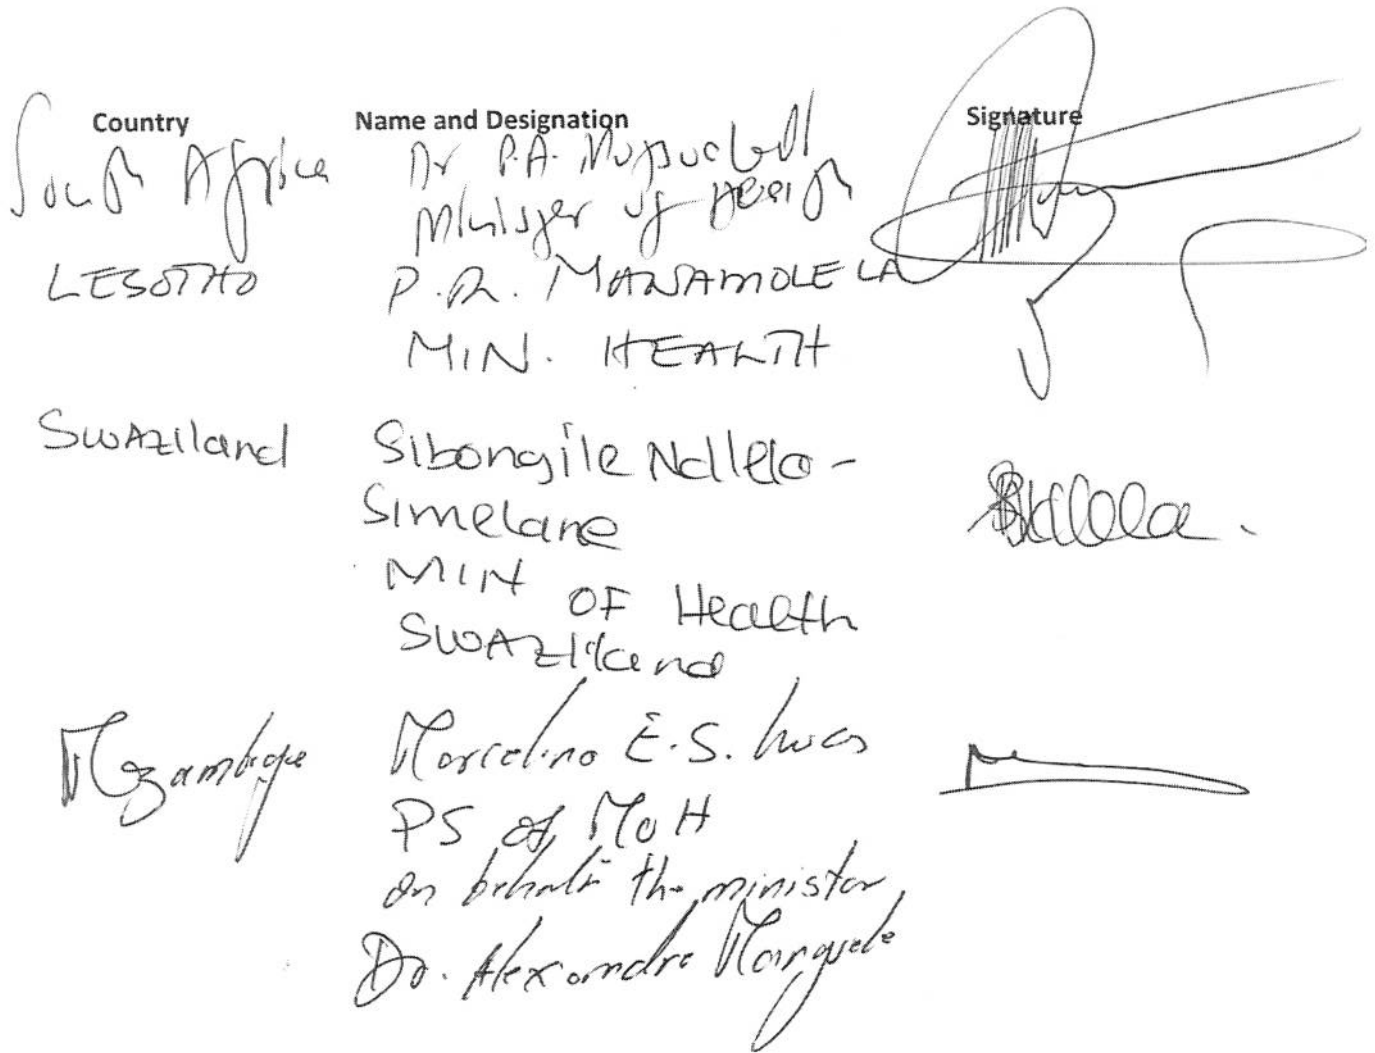 Country Name and Designation Signature
South Africa Dr P.A.
Minister of Health
LESOTHO P.R. MANAMOLELA
MIN. HEALTH
Swaziland Sibongile Ndlela-
Simelane
MIN
OF Health
SWAZILand
Mozambique Marcelino E.S. Lucas
PS of MoH
on behalf the minister
Dr. Alexandre Manguele